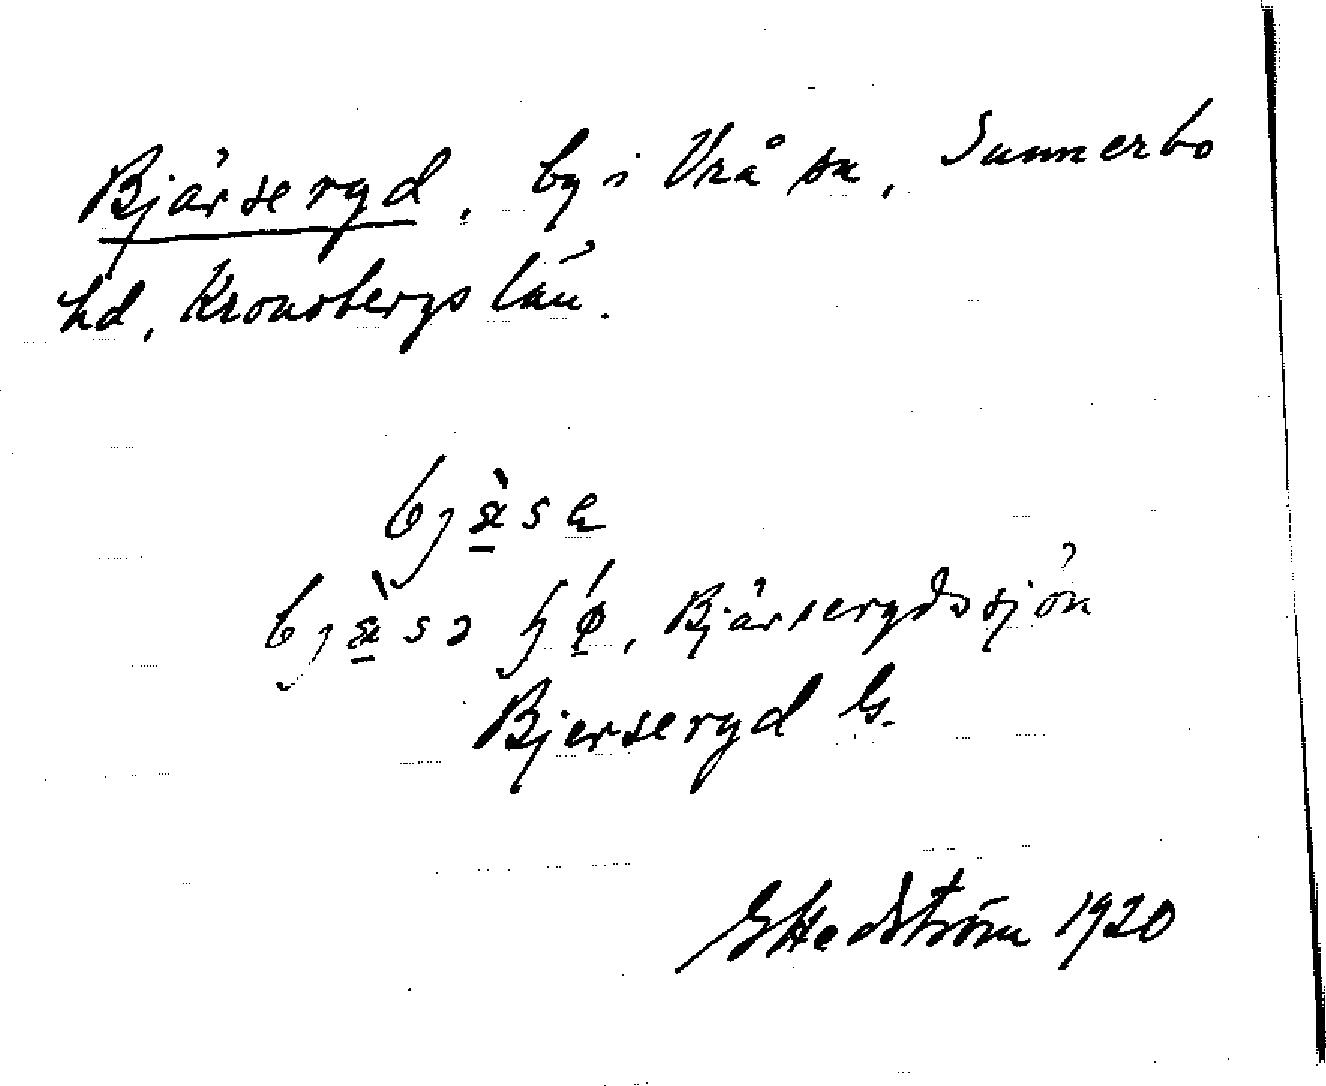 Bjärseryd, by i Vrå sn, Sunnerbo
hd, Kronobergs län.
bjæ̀sa
bjæ̀sə ɧǿ, Bjärserydssjön
Bjerseryd G.
G Hedström 1920